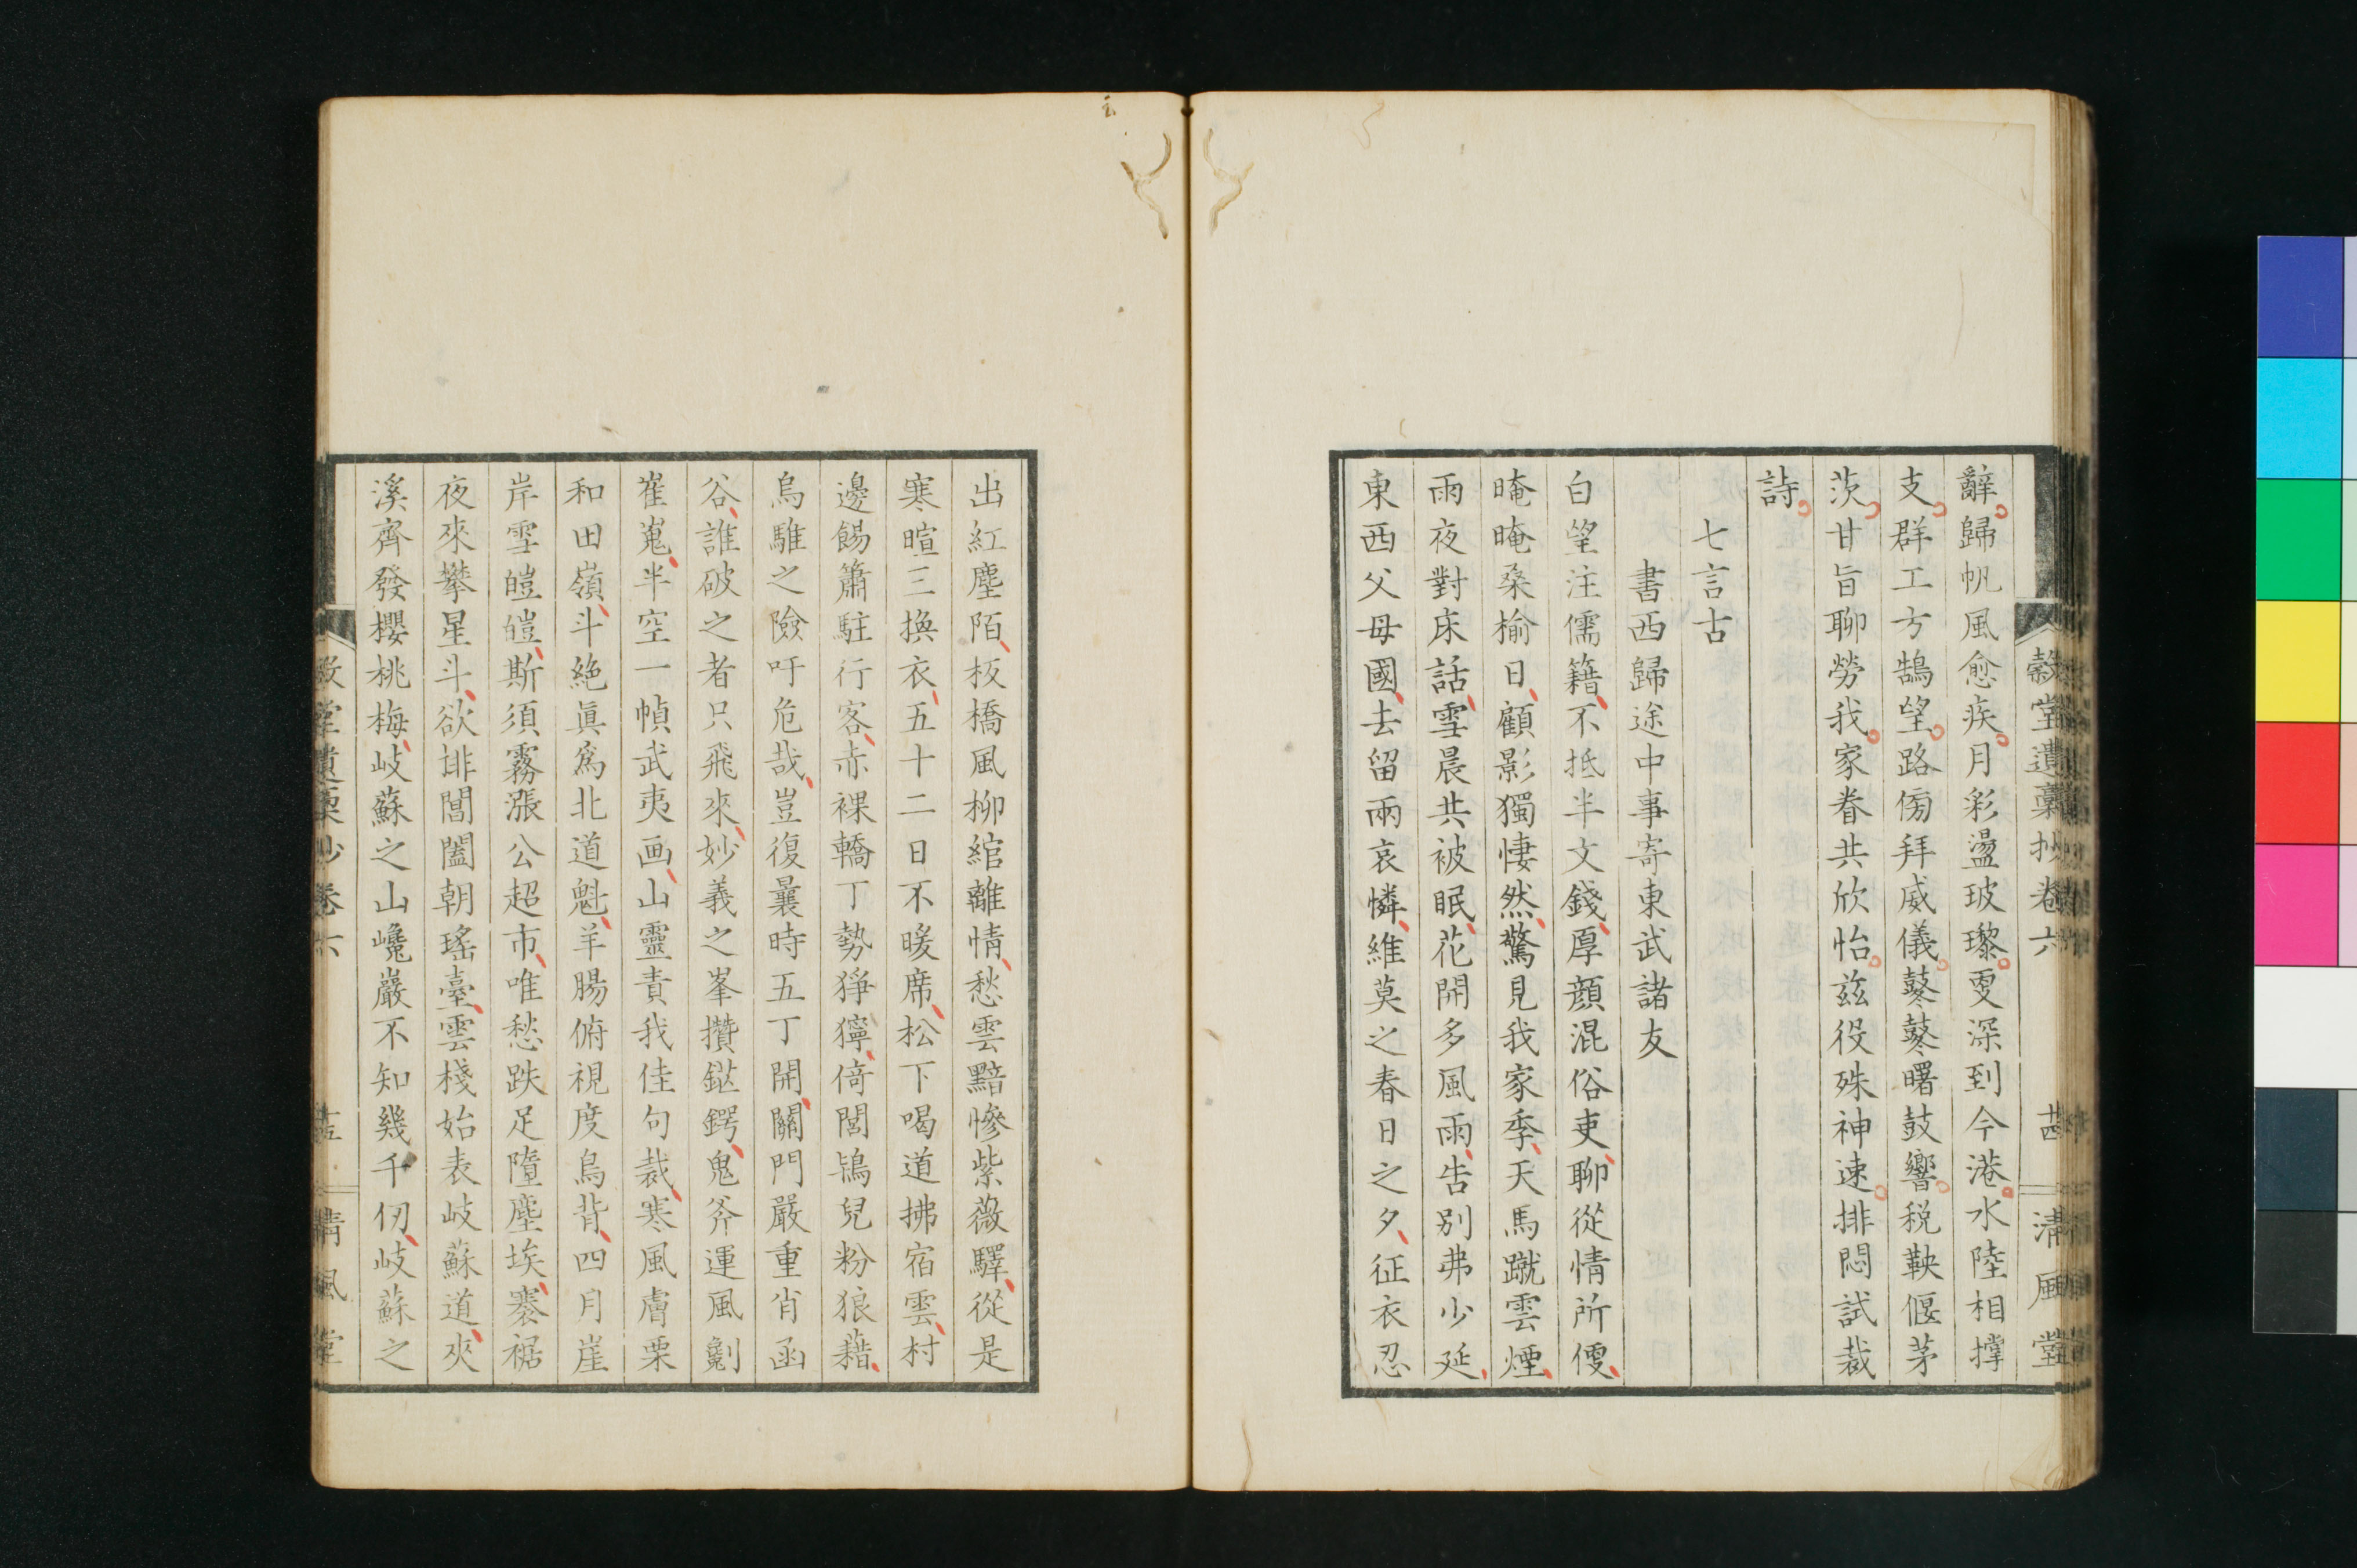 穀堂遺稾抄卷六 廿四 清風堂
辭歸帆風愈疾月彩盪玻瓈更深到今港水陸相撑
支群工方鵠望路傍拜威儀鼕鼕曙鼓響税鞅偃茅
茨甘旨聊勞我家眷共欣怡兹役殊神速排悶試裁
詩
七言古
書西歸途中事寄東武諸友
白望注儒籍不抵半文錢厚顔混俗吏聊從情所便
晻晻桑榆日顧影獨悽然驚見我家季天馬蹴雲煙
雨夜對床話雪晨共被眠花開多風雨告別弗少延
東西父母國去留兩哀憐維莫之春日之夕征衣忍
出紅塵陌板橋風柳綰離情愁雲黯慘紫薇驛從是
寒暄三換衣五十二日不暖席松下喝道拂宿雲村
邊餳簫駐行客赤裸轎丁勢猙獰倚閭鴇兒粉狼藉
烏騅之險吁危哉豈復曩時五丁開關門嚴重肖函
谷誰破之者只飛來妙義之峯攢鎹鍔鬼斧運風劖
崔嵬半空一幀武夷画山靈責我佳句裁寒風膚栗
和田嶺斗絶眞爲北道魁羊腸俯視度鳥背四月崖
岸雪皚皚斯須霧漲公超市唯愁跌足墮塵埃褰裾
夜來攀星斗欲排閶闔朝瑤臺雲棧始表岐蘇道夾
溪齊發櫻桃梅岐蘇之山巉巖不知幾千仞岐蘇之
穀堂遺稾抄卷六 廿五 清風堂